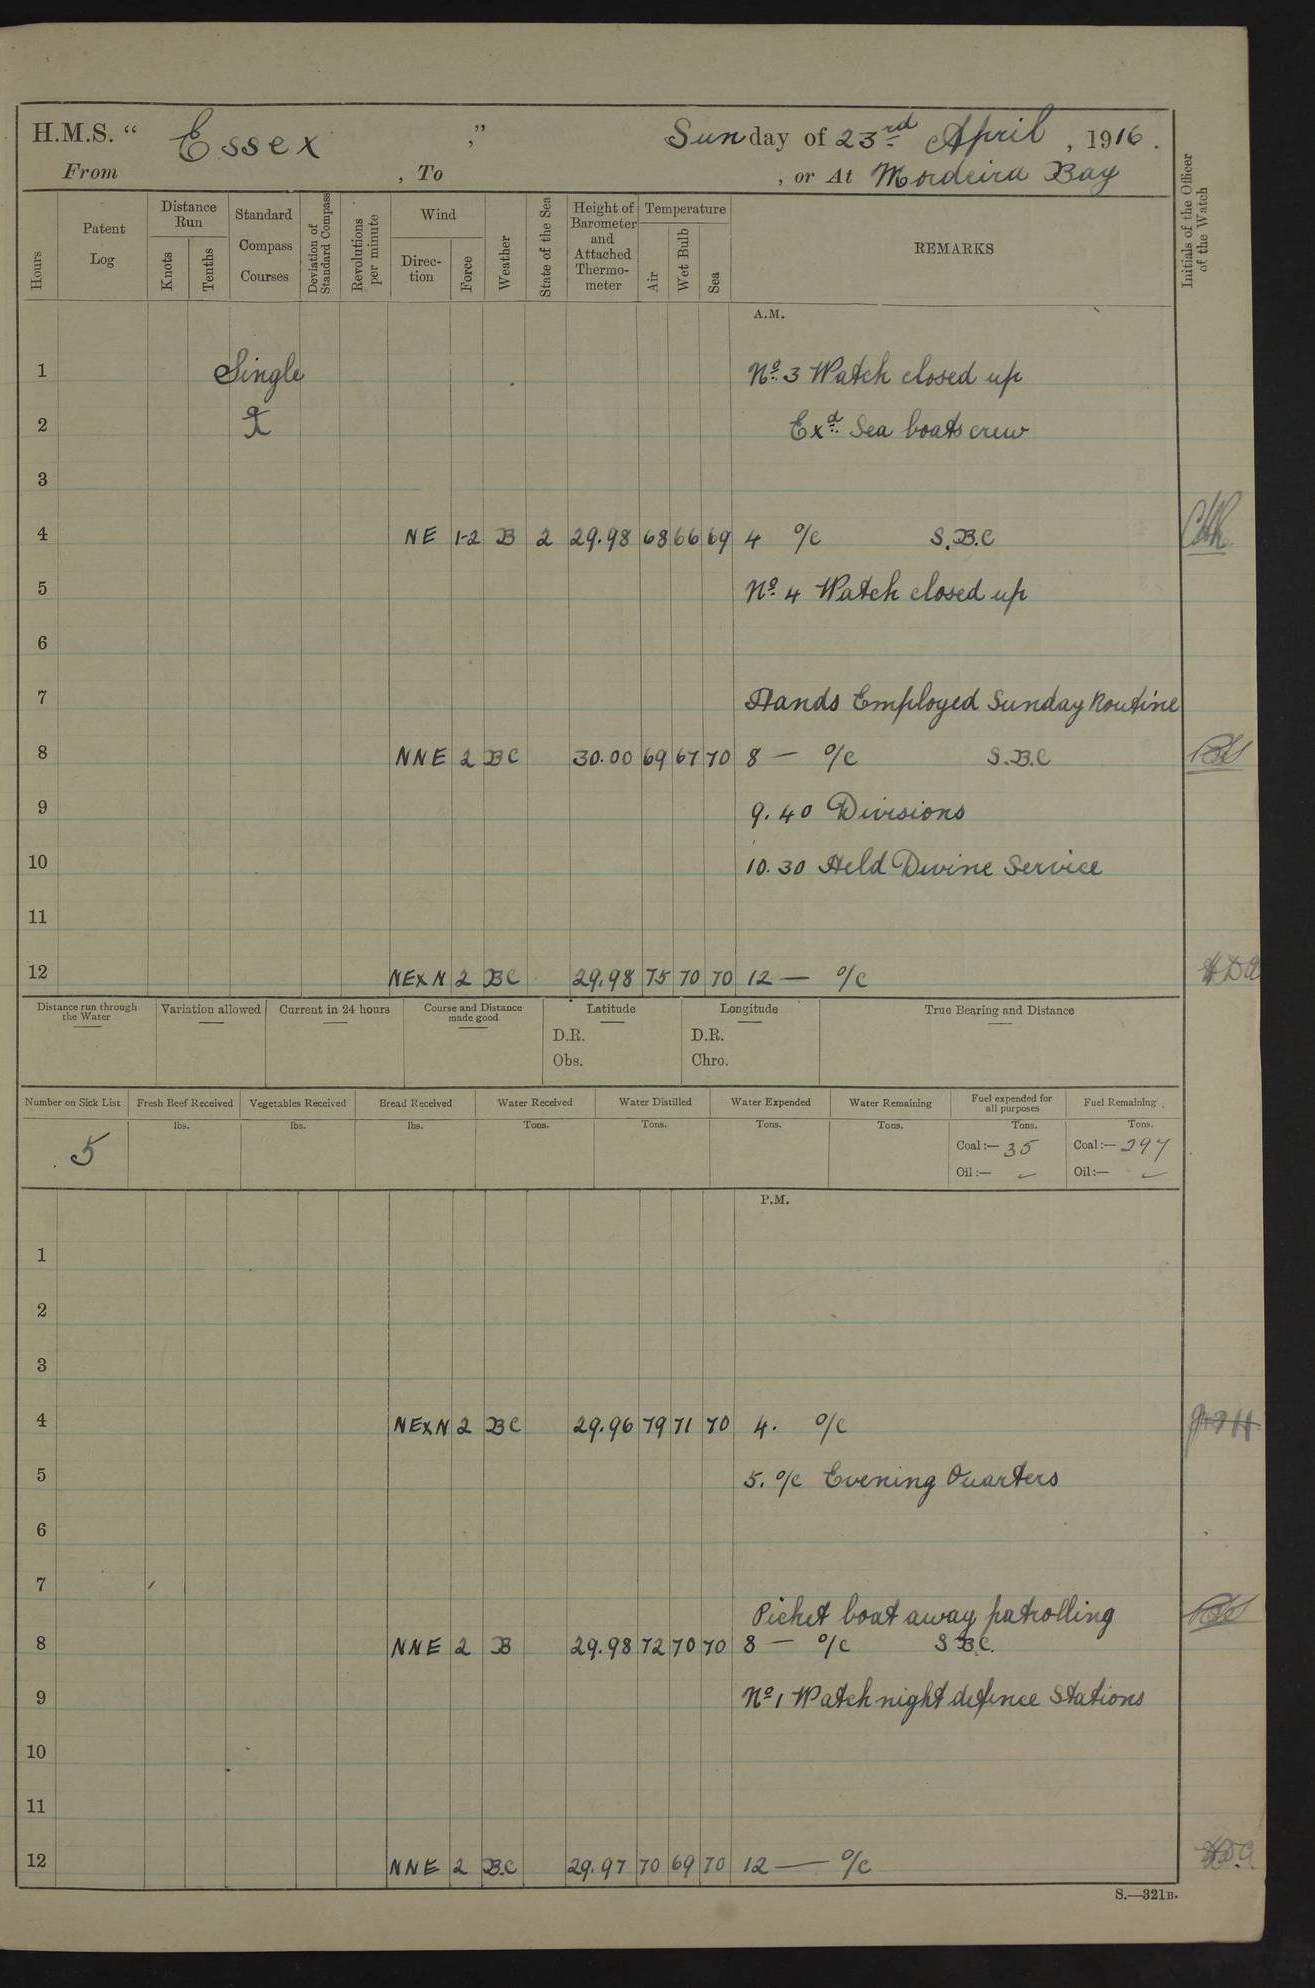 H.M.S. " Essex ," Sunday of 23rd April, 1916.
From , To , or At Mordeira Bay
Hours
Patent Log
Distance Run
Knots
Tenths
Standard Compass Courses
Deviation of Standard Compass
Revolutions per minute
Wind
Direc-tion
Force
Weather
State of the Sea
Height of Barometer and Attached Thermo-meter
Temperature
Air
Wet Bulb
Sea
REMARKS
Initials of the Officer of the Watch
A.M.
1 Single No. 3 Watch closed up
2 Exd. Sea boats crew
3
4 NE 1-2 B 2 29.98 68 66 69 4 o/c S.B.C
5 No. 4 Watch closed up
6
7 Hands Employed Sunday Routine
8 NNE 2 BC 30.00 69 67 70 8 — o/c S.B.C
9 9.40 Divisions
10 10.30 Held Divine Service
11
12 NExN 2 BC 29.98 75 70 70 12 — o/c
Distance run through the Water
Variation allowed
Current in 24 hours
Course and Distance made good
Latitude
D.R.
Obs.
Longitude
D.R.
Chro.
True Bearing and Distance
Number on Sick List
5
Fresh Beef Received
lbs.
Vegetables Received
lbs.
Bread Received
lbs.
Water Received
Tons.
Water Distilled
Tons.
Water Expended
Tons.
Water Remaining
Tons.
Fuel expended for all purposes
Tons.
Coal :— 35
Oil :— ✓
Fuel Remaining
Tons.
Coal :— 297
Oil :— ✓
P.M.
1
2
3
4 NExN 2 BC 29.96 79 71 70 4. o/c
5 5. o/c Evening Quarters
6
7
Picket boat away patrolling
8 NNE 2 B 29.98 72 70 70 8 — o/c S.B.C.
9 No. 1 Watch night defence Stations
10
11
12 NNE 2 B.C 29.97 70 69 70 12 — o/c
S.—321B.